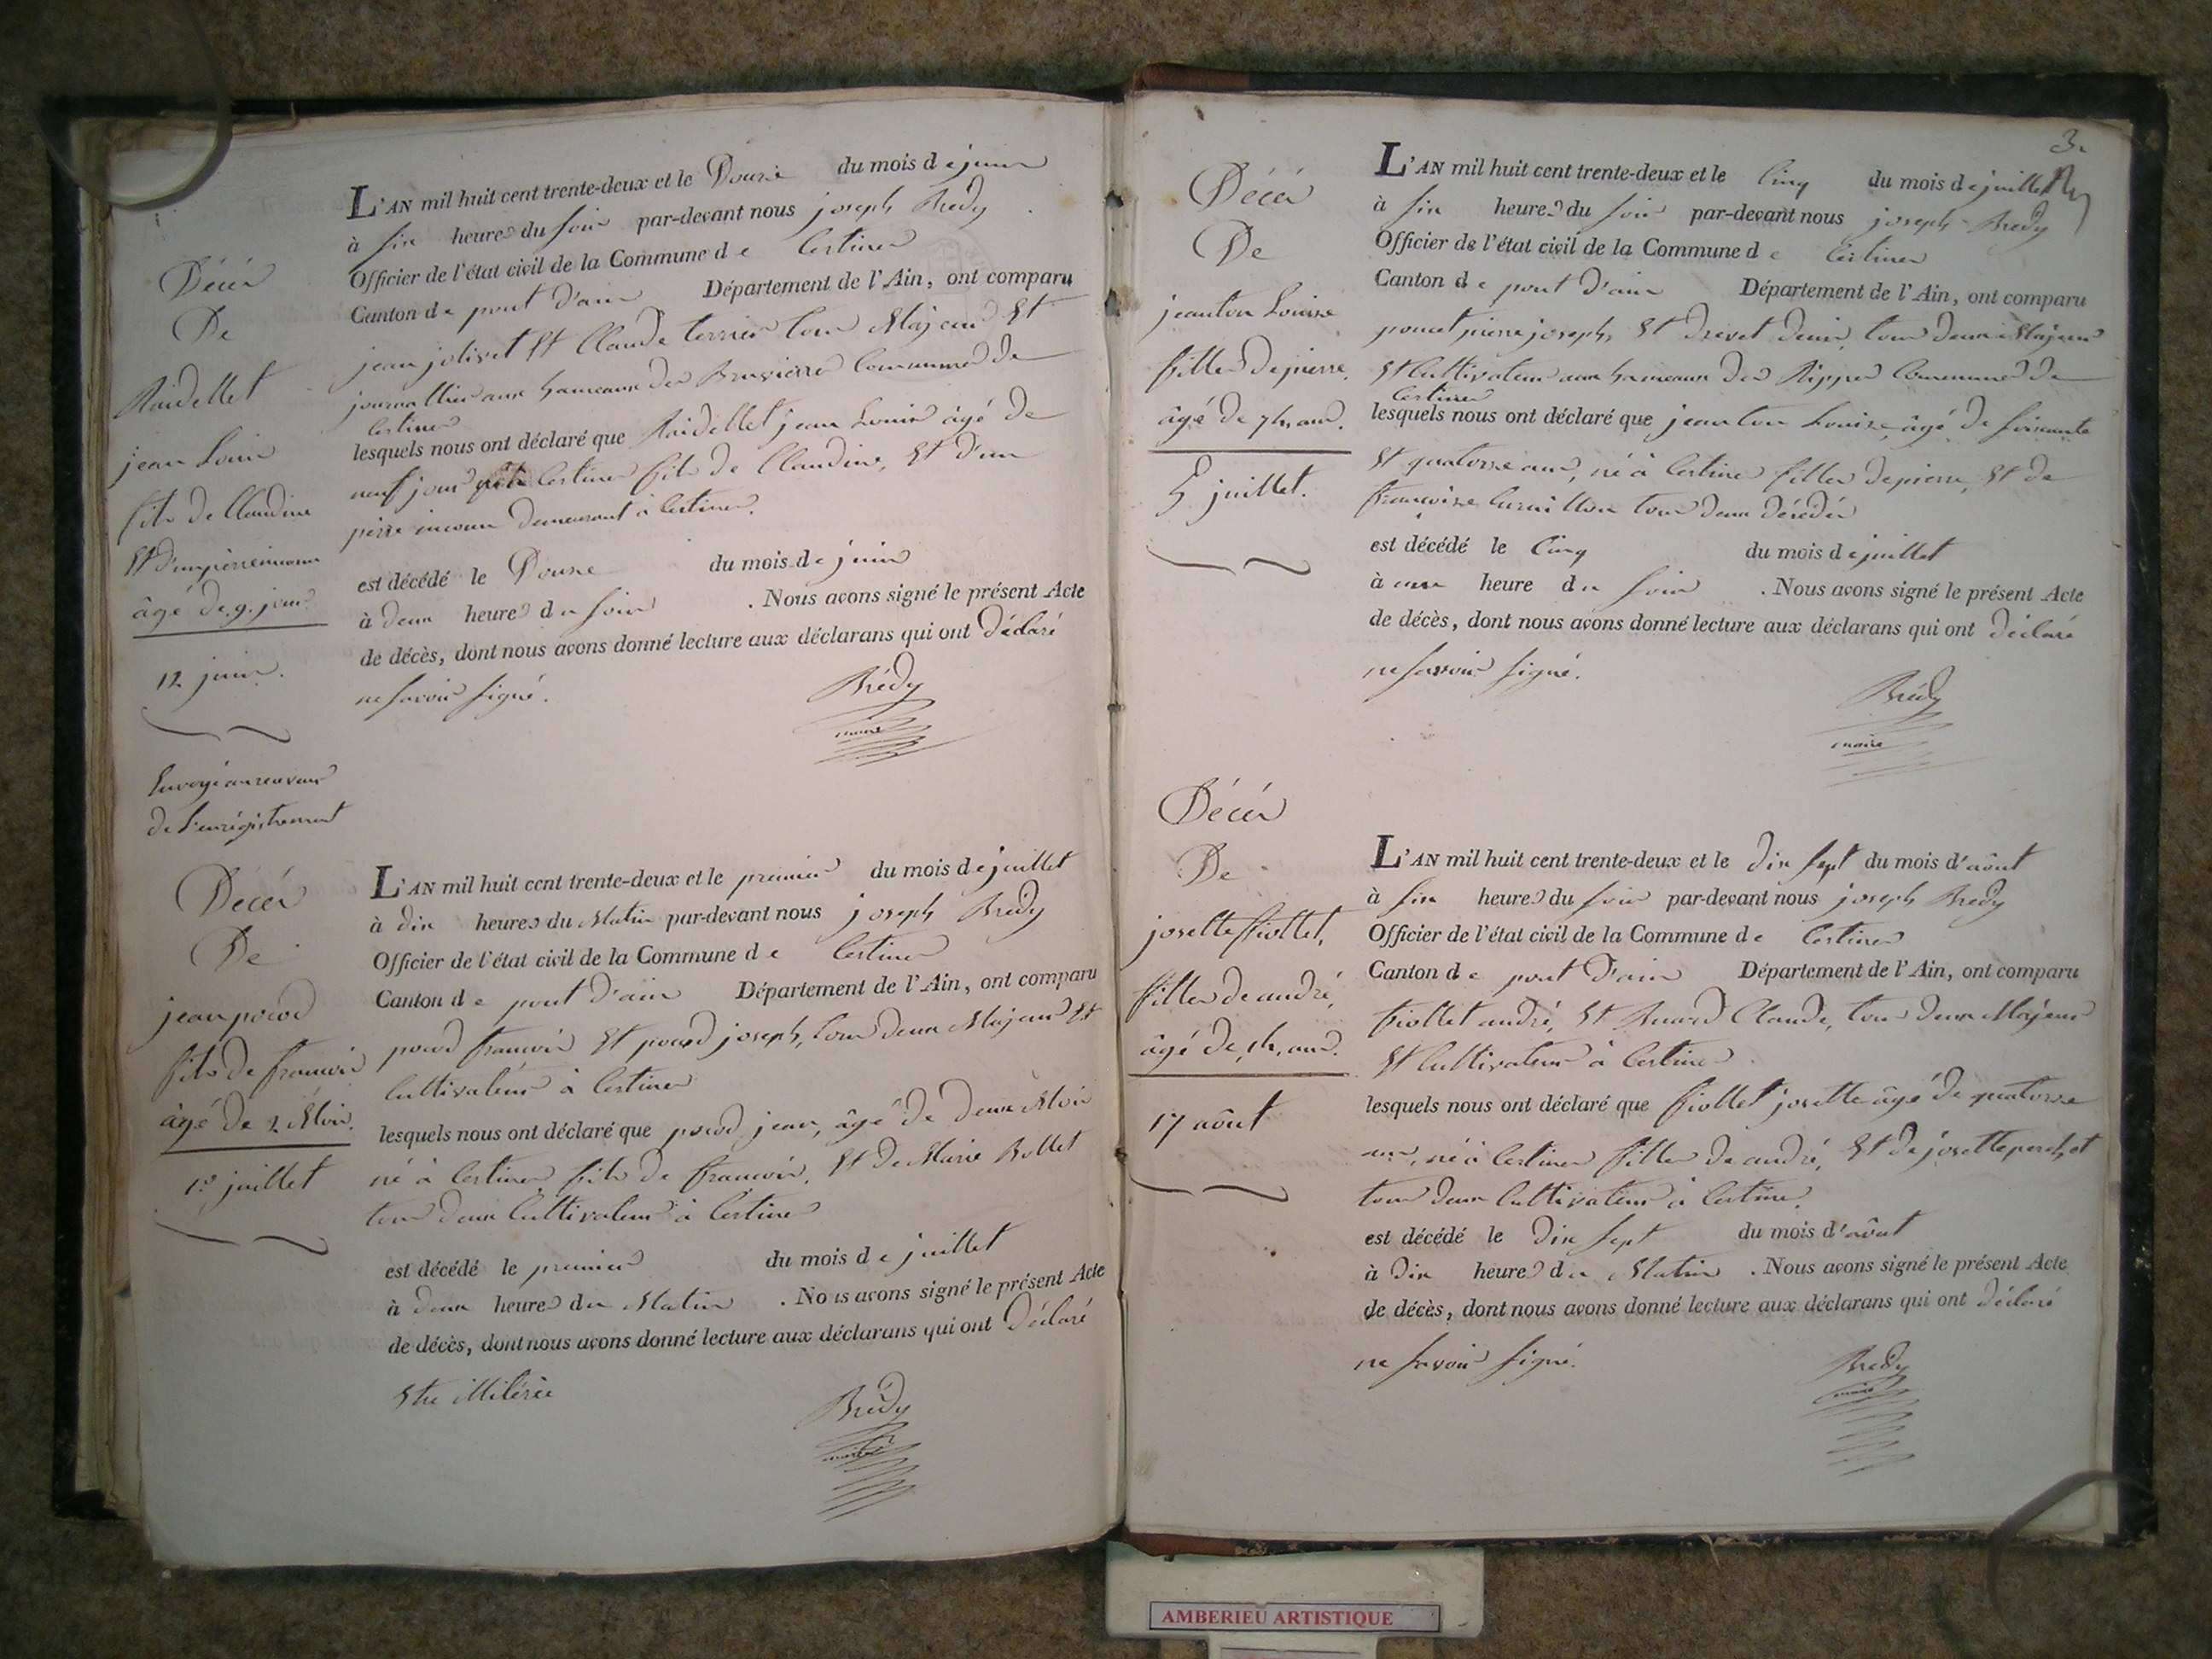 Décès
De
Raidellet
jean Louis
fils de Claudine
Et d'un père inconnu
âgé de .9. jours
12 juin.
L'AN mil huit cent trente-deux et le Douze du mois de juin
à six heures du soir par-devant nous joseph Brédy
Officier de l'état civil de la Commune de Certines
Canton de pont d'ain Département de l'Ain, ont comparu
jean jolivet Et Claude terrier tous Majeurs Et
journalliers aux hameaux des Bruyères Commune de
Certines
lesquels nous ont déclaré que Raidellet jean Louis âgé de
neuf jours né à Certines fils de Claudine, Et d'un
père inconnu demeurant à Certines.
est décédé le Douze du mois de juin
à deux heures du soir . Nous avons signé le présent Acte
de décès, dont nous avons donné lecture aux déclarans qui ont Déclaré
ne savoir signé.
Brédy
maire
Envoyé au receveur
de l'enrégistrement
Décès
De
jean pocod
fils de françois
âgé de 2 Mois.
1er juillet
L'AN mil huit cent trente-deux et le premier du mois de juillet
à dix heures du Matin par-devant nous joseph Brédy
Officier de l'état civil de la Commune de Certines
Canton de pont d'ain Département de l'Ain, ont comparu
pocod françois Et pocod joseph, tous deux Majeurs Et
Cultivateurs à Certines
lesquels nous ont déclaré que pocod jean, âgé de deux Mois
né à Certines fils de françois, Et de Marie Bollet
tous deux Cultivateurs à Certines
est décédé le premier du mois de juillet
à deux heures du Matin . Nous avons signé le présent Acte
de décès, dont nous avons donné lecture aux déclarans qui ont Déclaré
Etre illitérés
Brédy
maire
3
Décès
De
jeanton Louise
filles de pierre.
âgé de 74, ans.
5 juillet.
L'AN mil huit cent trente-deux et le Cinq du mois de juillet
à six heures du soir par-devant nous joseph Brédy
Officier de l'état civil de la Commune de Certines
Canton de pont d'ain Département de l'Ain, ont comparu
poncet pierre joseph, Et Drevet denis, tous deux Majeurs
Et Cultivateurs aux hameaux des Rippes Commune de
Certines
lesquels nous ont déclaré que jeanton Louise, âgé de soixante
Et quatorze ans, né à Certines filles de pierre, Et de
françoise tous deux décédés
est décédé le Cinq du mois de juillet
à une heure du soir . Nous avons signé le présent Acte
de décès, dont nous avons donné lecture aux déclarans qui ont Déclaré
ne savoir signé.
Brédy
maire
Décès
De
josette fiollet,
filles de andré,
âgé de 14, ans.
17 août
L'AN mil huit cent trente-deux et le dix sept du mois d'août
à six heures du soir par-devant nous joseph Brédy
Officier de l'état civil de la Commune de Certines
Canton de pont d'ain Département de l'Ain, ont comparu
fiollet andré, Et Claude, tous deux Majeurs
Et Cultivateurs à Certines
lesquels nous ont déclaré que fiollet josette âgé de quatorze
ans, né à Certines filles de andré, Et de josette perchet
tous deux Cultivateurs à Certines.
est décédé le Dix sept du mois d'août
à Dix heures du Matin . Nous avons signé le présent Acte
de décès, dont nous avons donné lecture aux déclarans qui ont déclaré
ne savoir signé.
Brédy
maire
AMBERIEU ARTISTIQUE